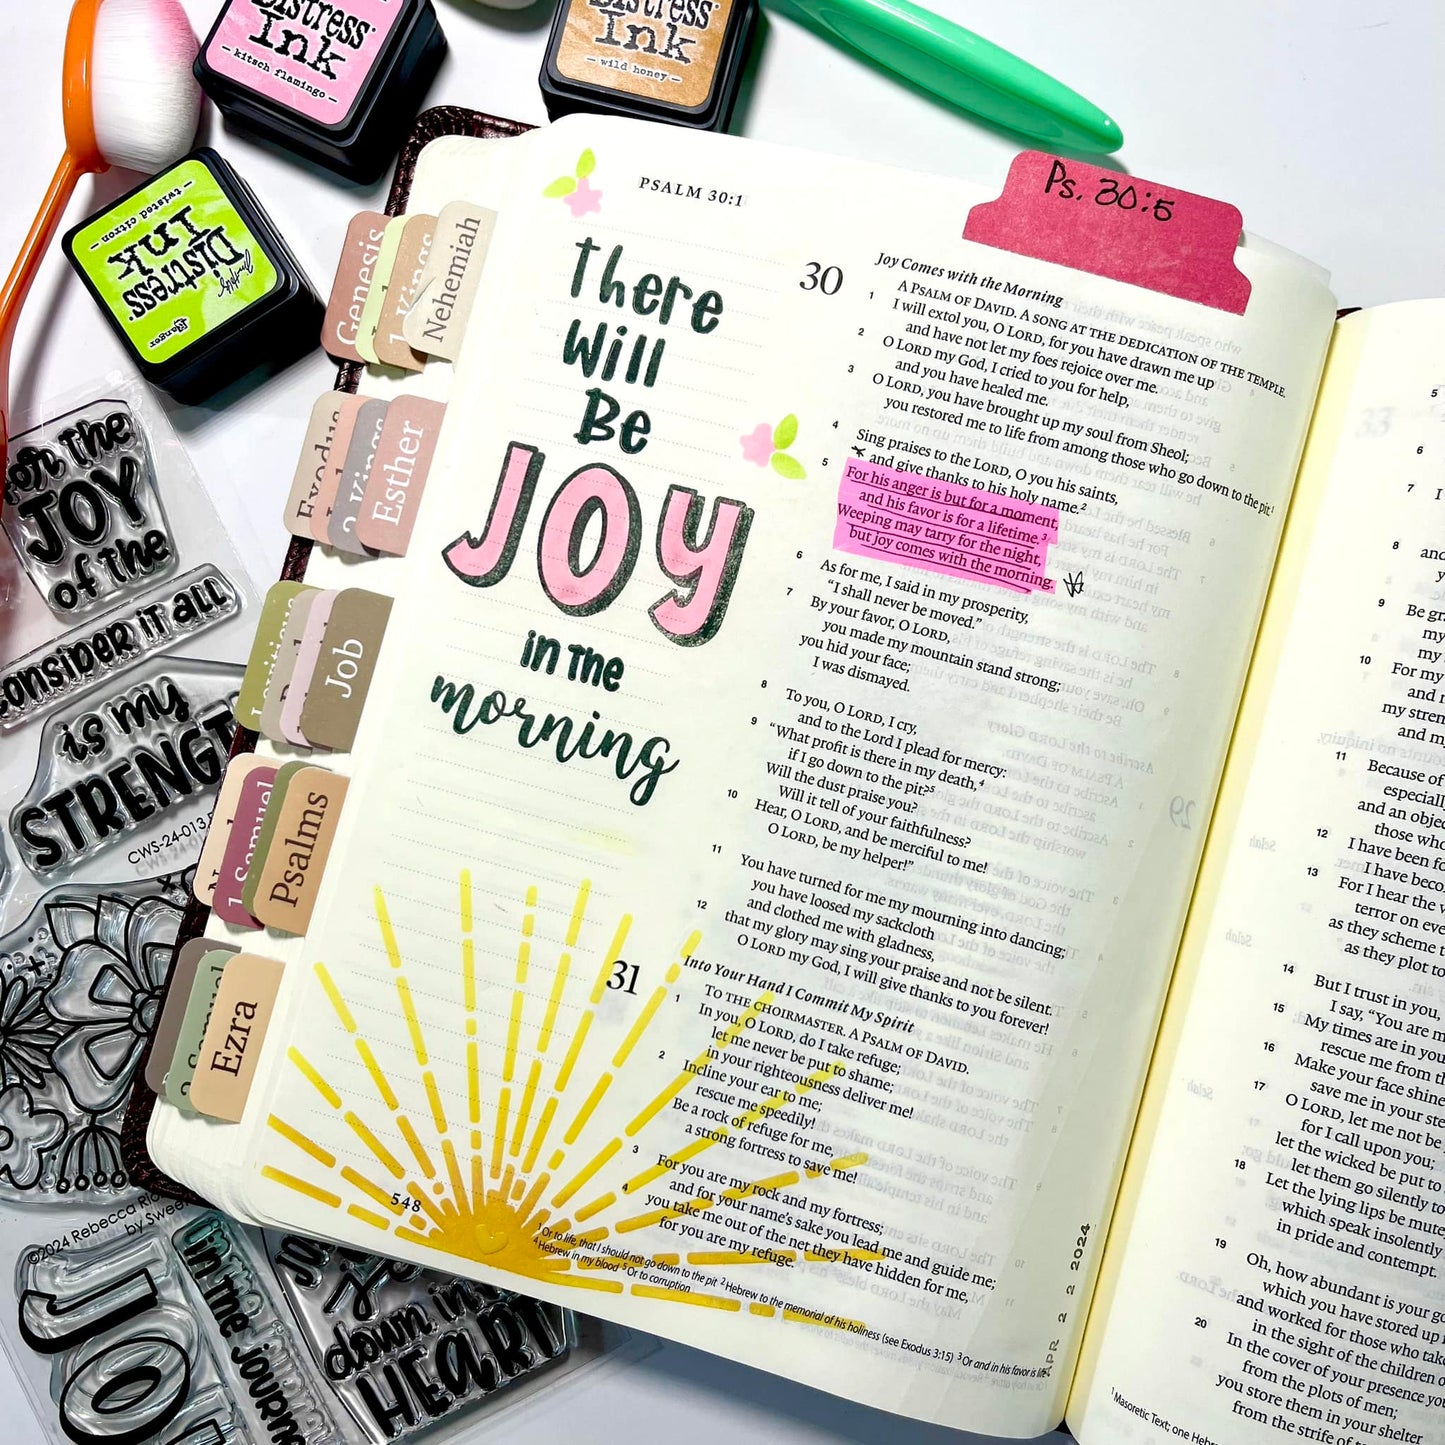 Distress
Ink
– kitsch flamingo –
Distress
Ink
– wild honey –
Distress
Ink
– twisted citron –
Ranger
Ps. 30:5
Genesis
Kings
Nehemiah
Exodus
2 Kings
Esther
Leviticus
Job
1 Samuel
Psalms
2 Samuel
Ezra
for the
JOY
of the
consider it all
is my
STRENGT
CWS-24-013
©2024 Rebecca
by Sweet
JOY
in the
journe
down in
HEART
PSALM 30:1
There
Will
Be
JOY
in the
morning
30
Joy Comes with the Morning
A PSALM OF DAVID. A SONG AT THE DEDICATION OF THE TEMPLE.
1 I will extol you, O LORD, for you have drawn me up
and have not let my foes rejoice over me.
2 O LORD my God, I cried to you for help,
and you have healed me.
3 O LORD, you have brought up my soul from Sheol;
you restored me to life from among those who go down to the pit.1
4 Sing praises to the LORD, O you his saints,
and give thanks to his holy name.2
5 For his anger is but for a moment,
and his favor is for a lifetime.3
Weeping may tarry for the night,
but joy comes with the morning.
6 As for me, I said in my prosperity,
“I shall never be moved.”
7 By your favor, O LORD,
you made my mountain stand strong;
you hid your face;
I was dismayed.
8 To you, O LORD, I cry,
and to the Lord I plead for mercy:
9 “What profit is there in my death,4
if I go down to the pit?5
Will the dust praise you?
Will it tell of your faithfulness?
10 Hear, O LORD, and be merciful to me!
O LORD, be my helper!”
11 You have turned for me my mourning into dancing;
you have loosed my sackcloth
and clothed me with gladness,
12 that my glory may sing your praise and not be silent.
O LORD my God, I will give thanks to you forever!
31
Into Your Hand I Commit My Spirit
TO THE CHOIRMASTER. A PSALM OF DAVID.
1 In you, O LORD, do I take refuge;
let me never be put to shame;
in your righteousness deliver me!
2 Incline your ear to me;
rescue me speedily!
Be a rock of refuge for me,
a strong fortress to save me!
3 For you are my rock and my fortress;
and for your name’s sake you lead me and guide me;
4 you take me out of the net they have hidden for me,
for you are my refuge.
548
1 Or to life, that I should not go down to the pit 2 Hebrew to the memorial of his holiness (see Exodus 3:15) 3 Or and in his favor is life
4 Hebrew in my blood 5 Or to corruption
APR 2 2 2024
5
6
7 I
8 and
y
9 Be gra
my
my
10 For my
and m
my stren
and my
11 Because of
especially
and an objec
those who
12 I have been fo
I have beco
13 For I hear the w
terror on eve
as they scheme t
as they plot to
14 But I trust in you,
I say, “You are m
15 My times are in you
rescue me from th
16 Make your face shine
save me in your ste
17 O LORD, let me not be
for I call upon you;
let the wicked be put to
let them go silently to
18 Let the lying lips be mute
which speak insolently
in pride and contempt.
19 Oh, how abundant is your go
which you have stored up
and worked for those who take
in the sight of the children o
20 In the cover of your presence you
from the plots of men;
you store them in your shelter
from the strife of
1 Masoretic Text; one Hebr